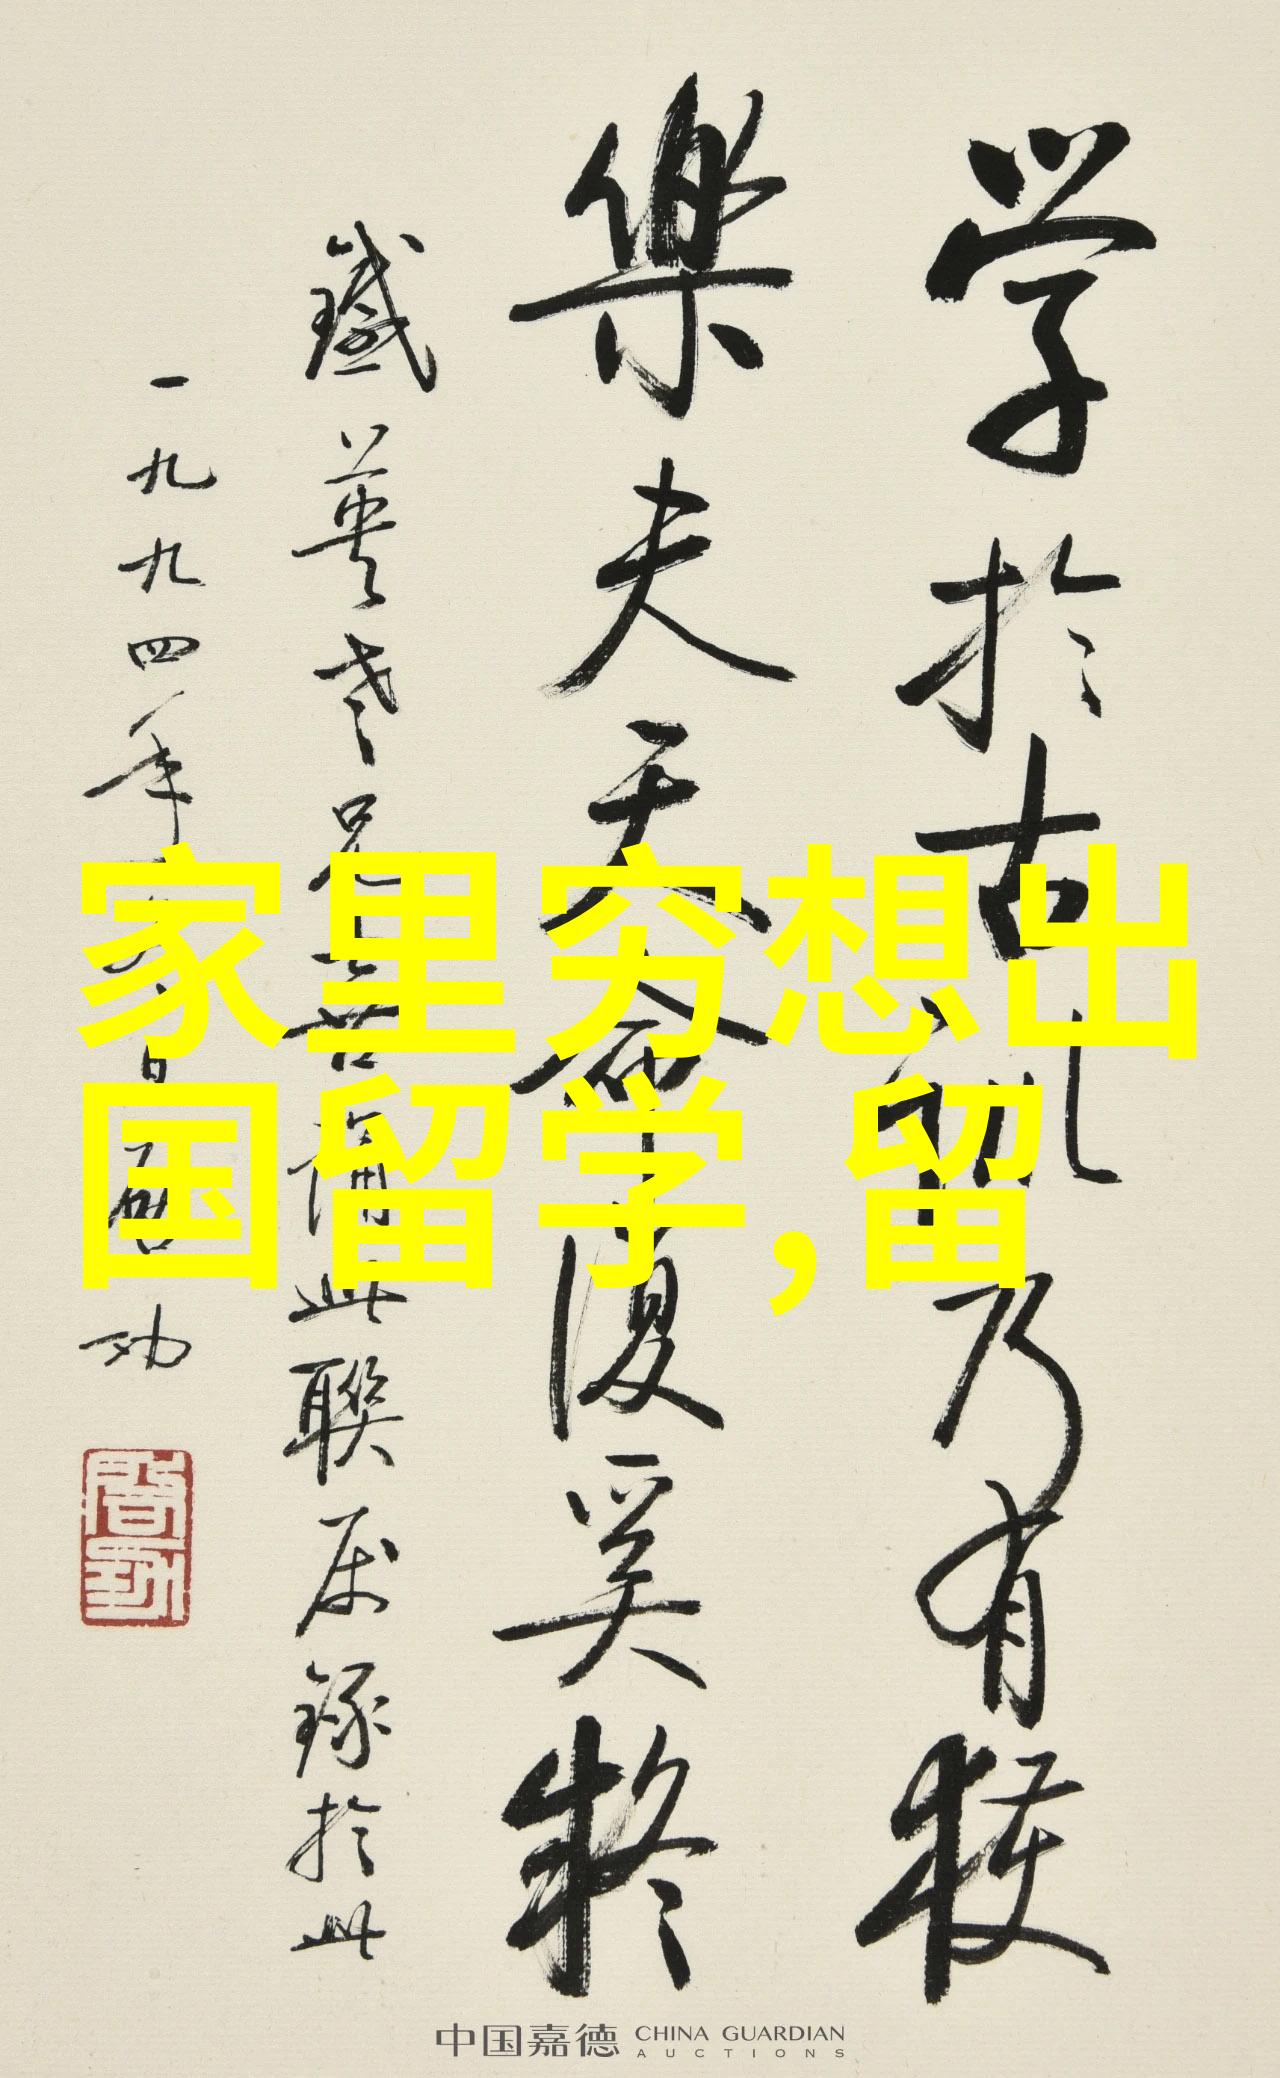 学於古訓乃有獲
樂夫天命復奚疑
鐵英老兄喜誦此聯屬錄於此
一九九四年
啟功
家里穷想出
国留学,留
中国嘉德 CHINA GUARDIAN
AUCTIONS